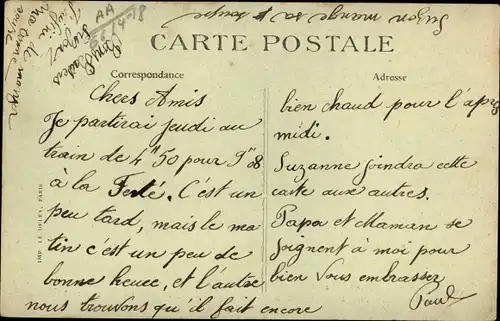 CARTE POSTALE
Correspondance
Adresse
Chers Amis
Je partirai jeudi au
train de 4h50 pour
à la Ferté. C'est un
peu tard, mais le ma
tin c'est un peu de
bonne heure, et l'autre
nous trouvons qu'il fait encore
bien chaud pour l'après
midi.
Suzanne joindra cette
carte aux autres.
Papa et Maman se
joignent à moi pour
bien vous embrasser
Paul
IMP. LE DELEY, PARIS
AA